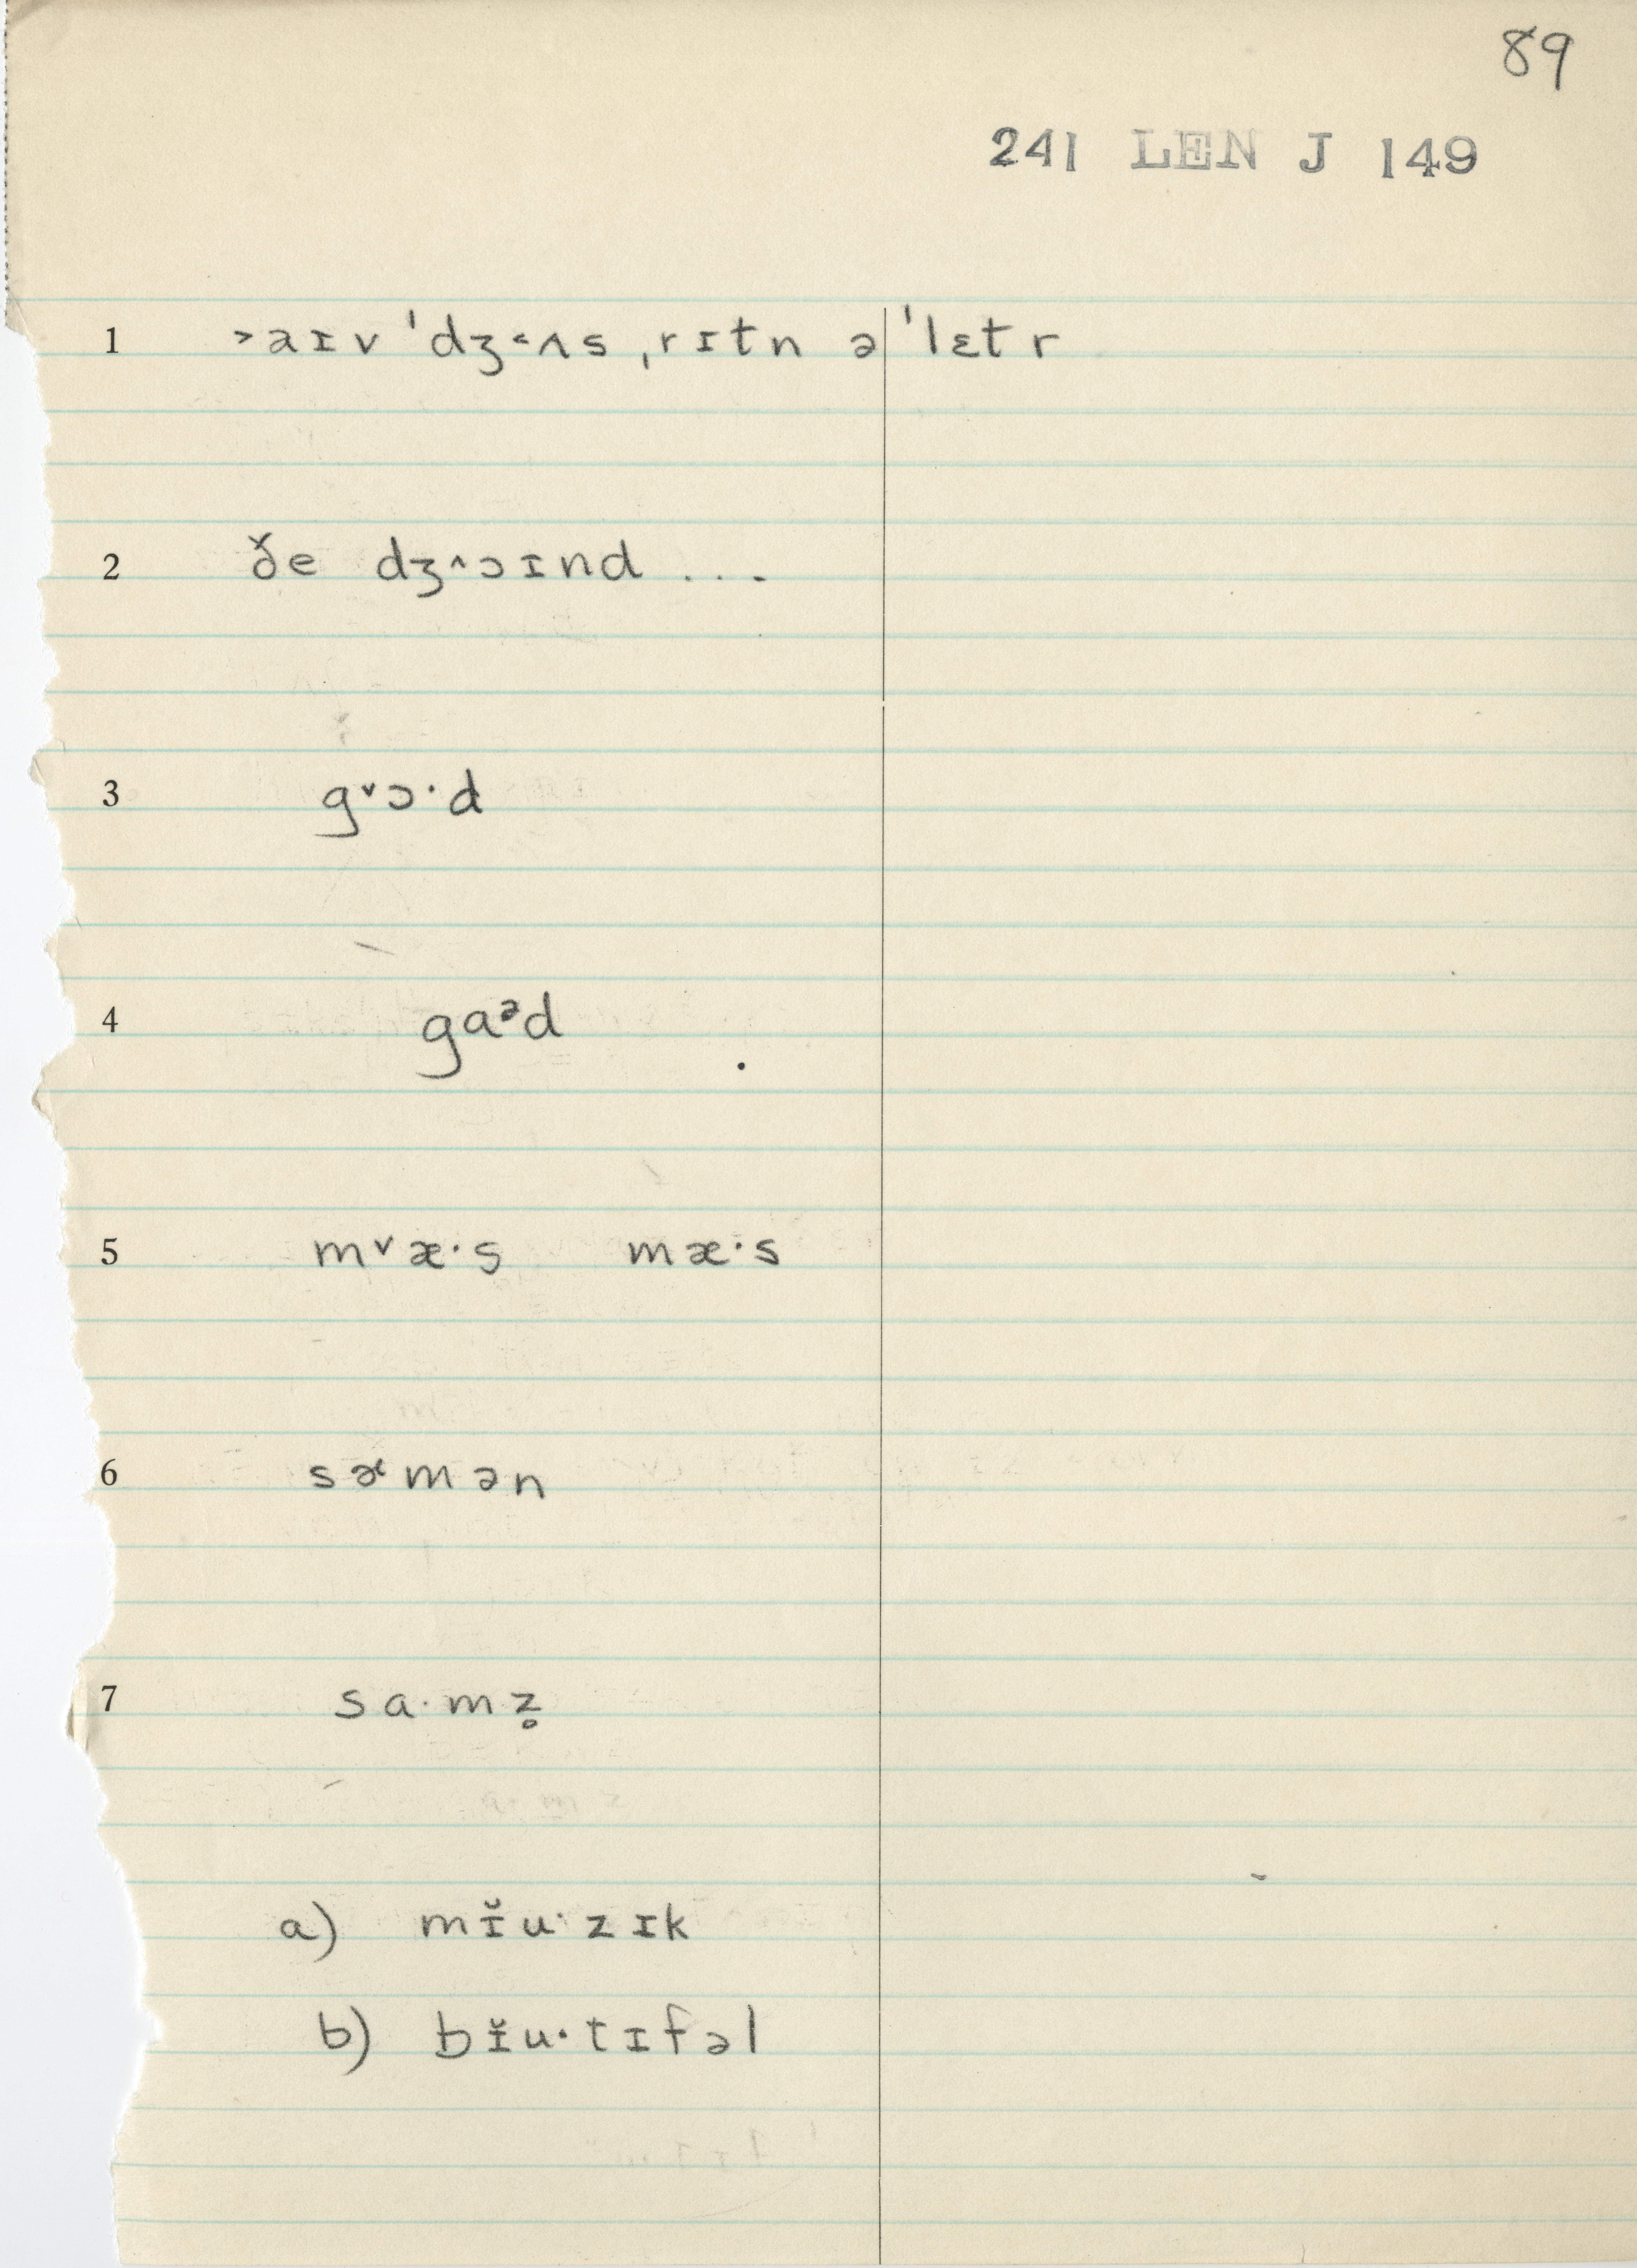 89
241 LEN J 149
1 ˃aɪv ˈdʒ˂ʌs ˌrɪtn ə ˈlɛtr
2 ðe dʒ˄ɔɪnd ...
3 g˅ɔ·d
4 gaᵊd
5 m˅æ·s mæ·s
6 məmən
7 sa·mz̥
a) mɪ̆u·zɪk
b) bɪ̆u·tɪfəl